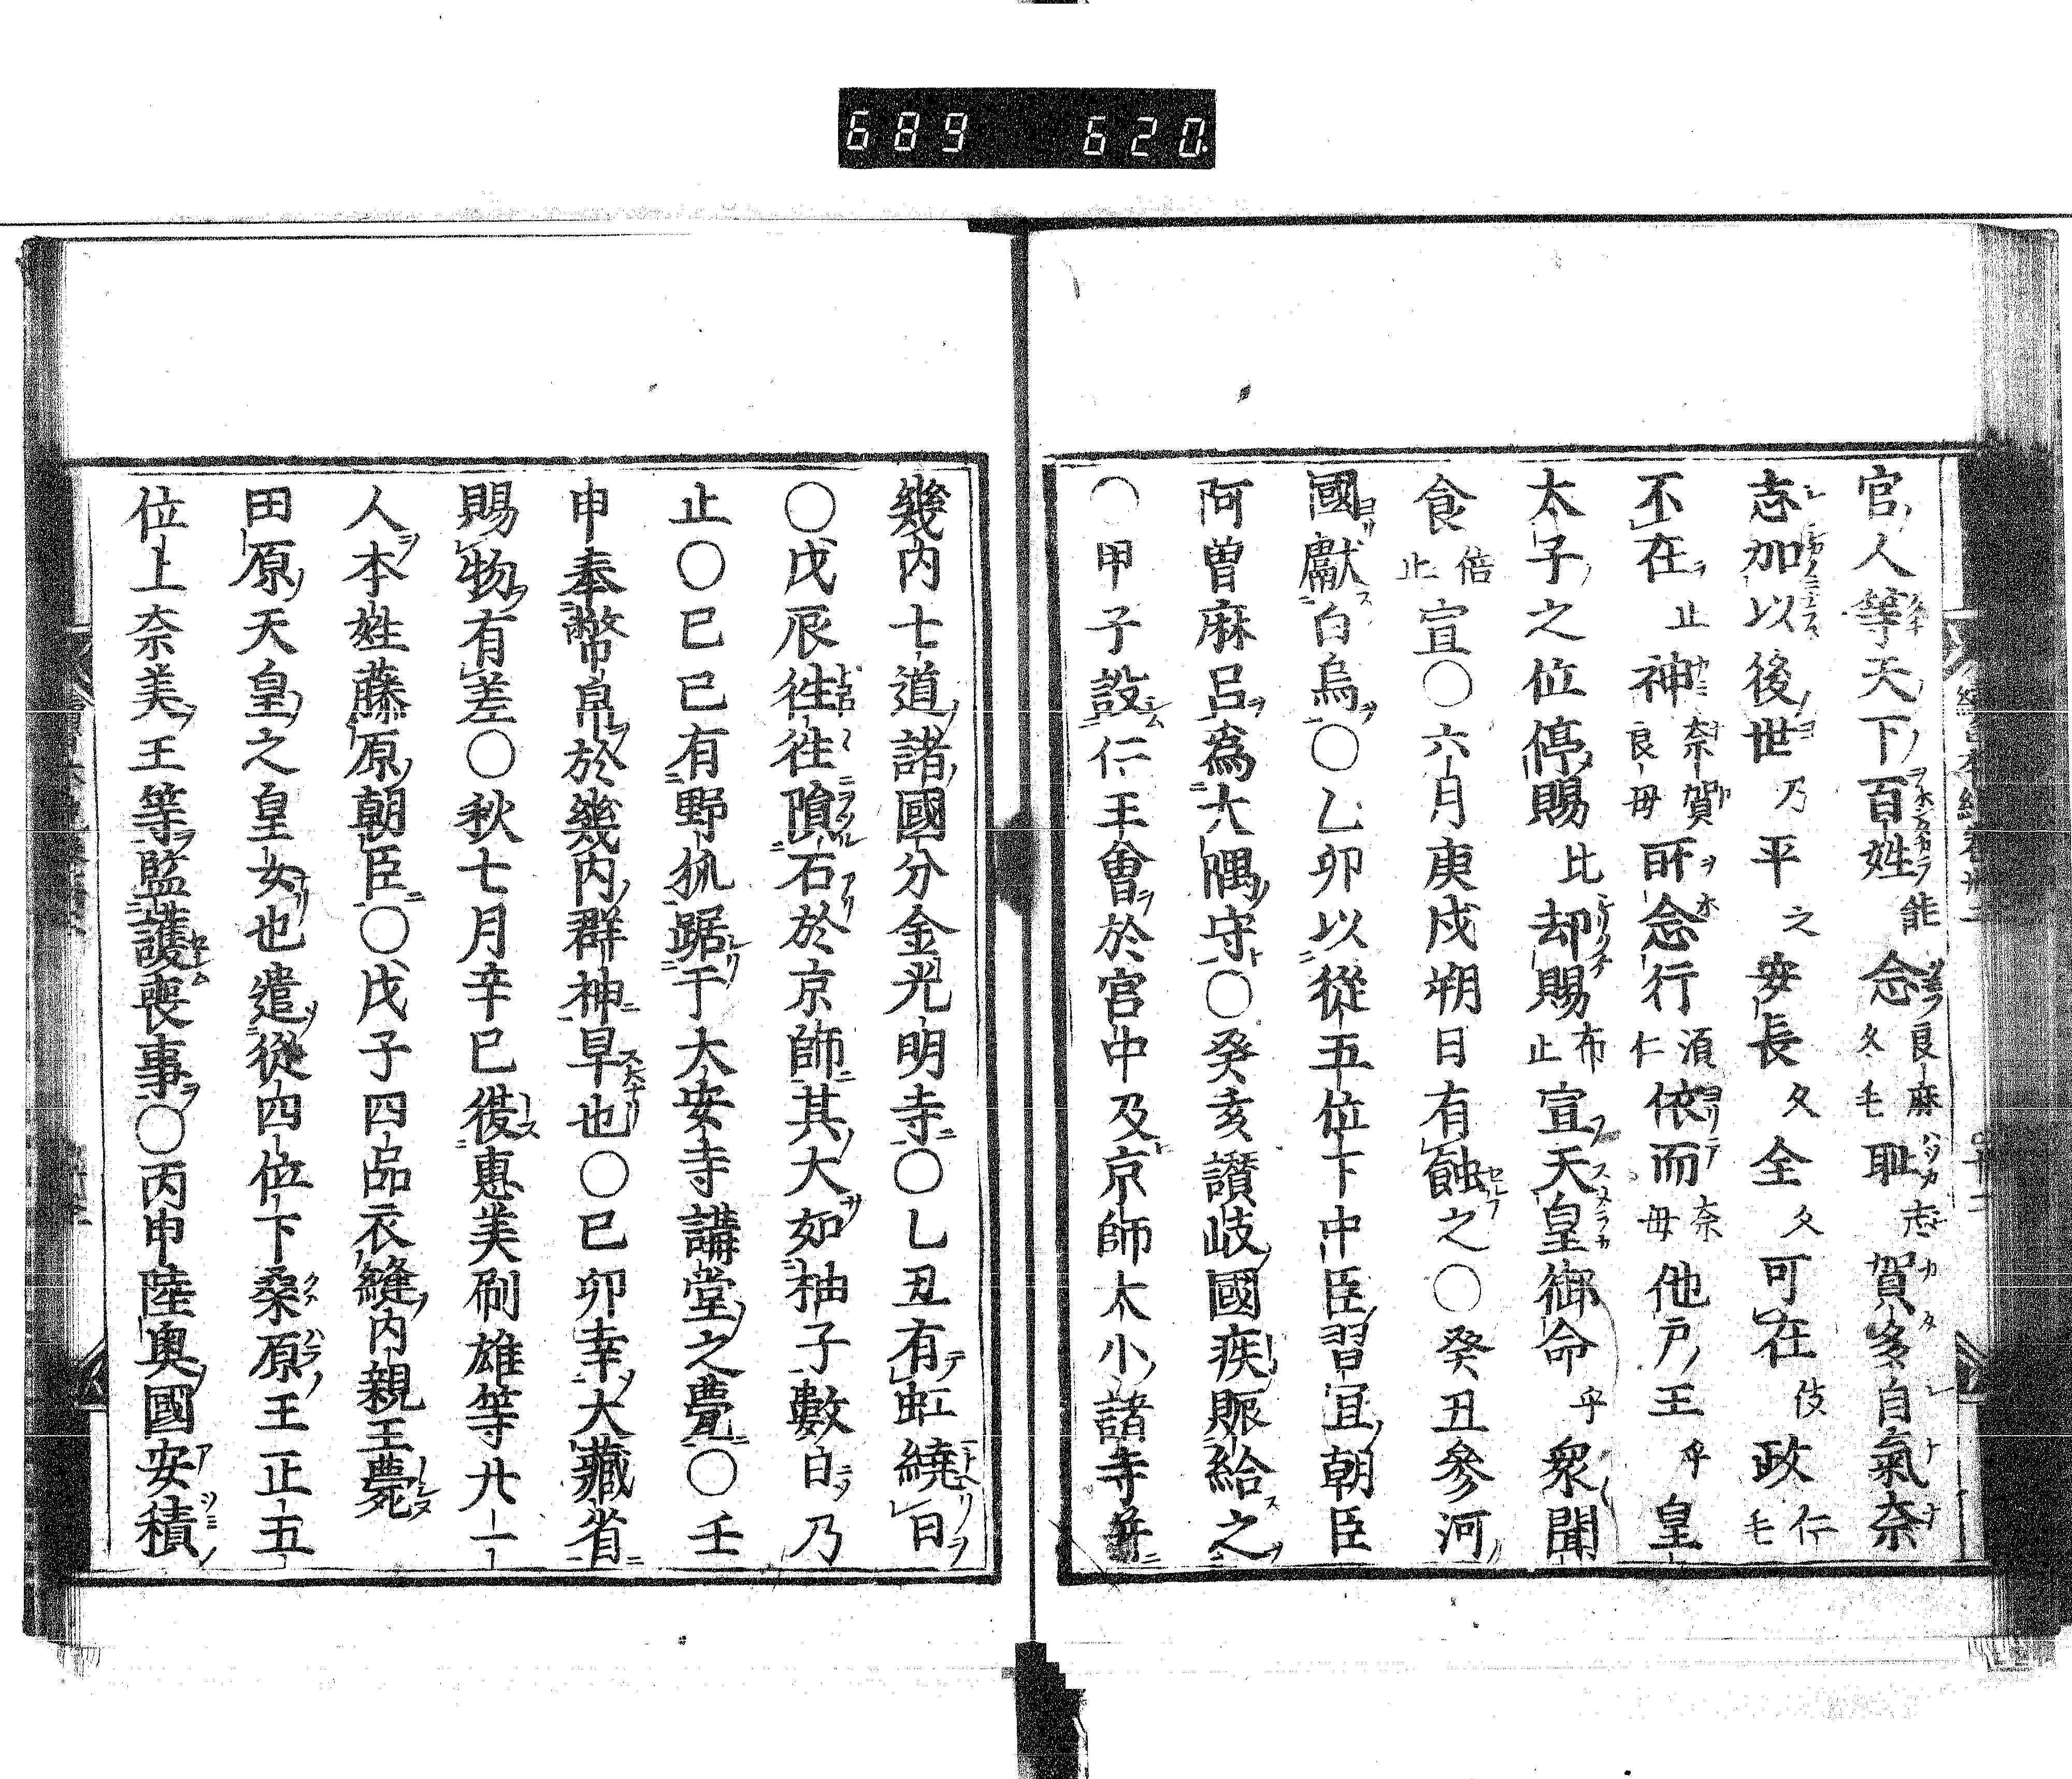 689 620
官人等天下百姓能念良麻久毛耻志賀多自氣奈
志加以後世乃平之安長久全久可在伎政仁毛
不在止神奈賀良毋所念行須仁依而奈毋他戸王乎皇
太子之位停賜比却賜布止宣天皇御命乎衆聞
食倍止宣〇六月庚戌朔日有蝕之〇癸丑參河
國獻白烏〇乙卯以從五位下中臣習宜朝臣
阿曽麻呂爲大隅守〇癸亥讃岐國疾賑給之
〇甲子設仁王會於宮中及京師大小諸寺并
幾内七道諸國分金光明寺〇乚丑有虹繞日
〇戊辰徃徃隕石於京師其大如柚子數日乃
止〇已巳有野狐踞于大安寺講堂之甍〇壬
申奉幣帛於幾内群神旱也〇已卯幸大藏省
賜物有差〇秋七月辛巳徙惠美刷雄等廾一
人本姓藤原朝臣〇戊子四品衣縫内親王薨
田原天皇之皇女也遣從四位下桑原王正五
位上奈美王等監護喪事〇丙申陸奥國安積